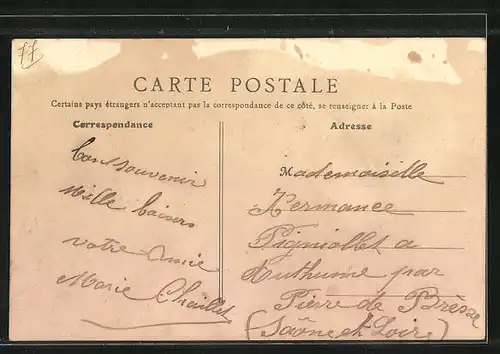 77
CARTE POSTALE
Certains pays étrangers n'acceptant pas la correspondance de ce côté, se renseigner à la Poste
Correspondance
Bon souvenir
Mille baisers
votre amie
Marie Chaillet
Adresse
Mademoiselle
Hermance
Pigniollet a
Authume par
Pierre de Bresse
(Saône et Loire)